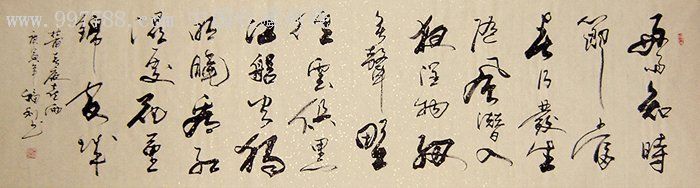 好雨知時
節當
春乃發生
隨風潛入
夜潤物細
無聲野
徑雲俱黑
江船火獨
明曉看紅
濕處花重
錦官城
春夜喜雨
庚寅年
www.997788.com